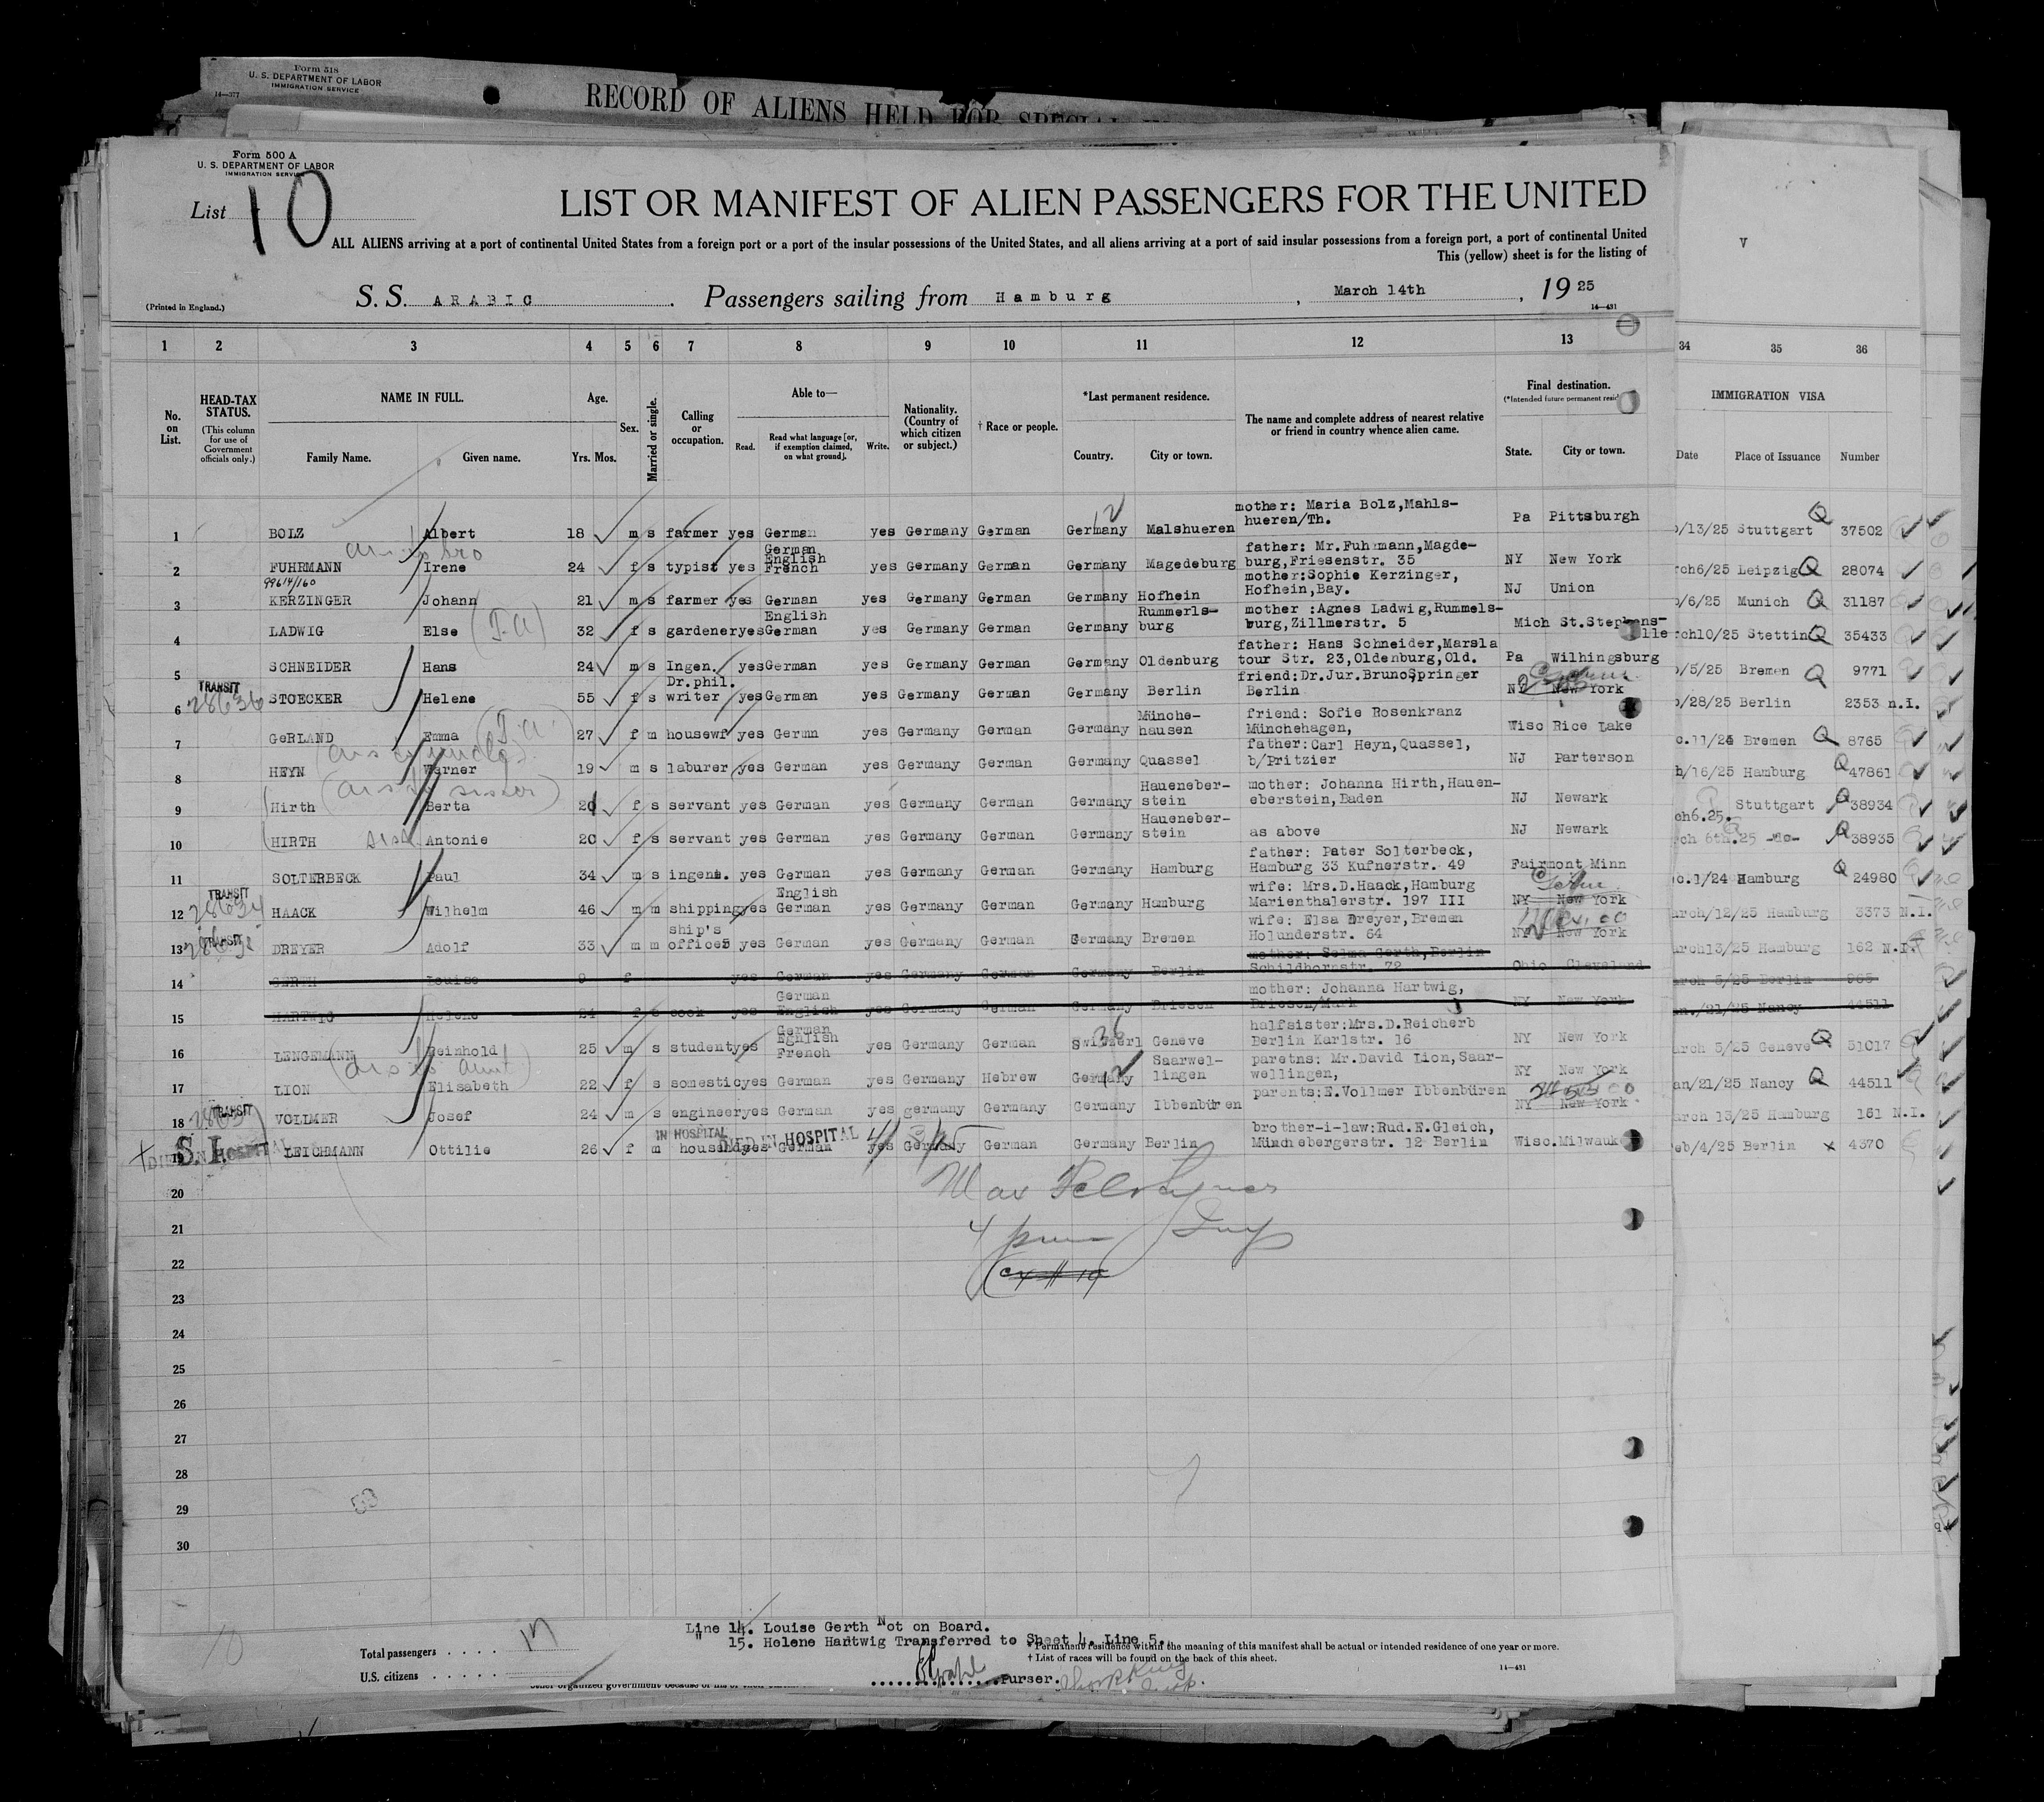 Form 518
U. S. DEPARTMENT OF LABOR
IMMIGRATION SERVICE
14—377
RECORD OF ALIENS HELD FOR SPECIAL
Form 500 A
U. S. DEPARTMENT OF LABOR
IMMIGRATION SERVICE
List 10
LIST OR MANIFEST OF ALIEN PASSENGERS FOR THE UNITED
ALL ALIENS arriving at a port of continental United States from a foreign port or a port of the insular possessions of the United States, and all aliens arriving at a port of said insular possessions from a foreign port, a port of continental United
This (yellow) sheet is for the listing of
V
(Printed in England.)
S. S. ARABIC. Passengers sailing from Hamburg, March 14th, 1925
14—431
1 2 3 4 5 6 7 8 9 10 11 12 13 34 35 36
No. on List.
HEAD-TAX STATUS.
(This column for use of Government officials only.)
NAME IN FULL.
Family Name. Given name.
Age.
Yrs. Mos.
Sex.
Married or single.
Calling or occupation.
Able to—
Read. Read what language [or, if exemption claimed, on what ground]. Write.
Nationality. (Country of which citizen or subject.)
† Race or people.
*Last permanent residence.
Country. City or town.
The name and complete address of nearest relative or friend in country whence alien came.
Final destination.
(*Intended future permanent resid
State. City or town.
IMMIGRATION VISA
Date Place of Issuance Number
1 BOLZ Albert 18 m s farmer yes German yes Germany German Germany Malshueren mother: Maria Bolz,Mahls-hueren/Th. Pa Pittsburgh /13/25 Stuttgart Q 37502
2 FUHRMANN Irene 24 f s typist yes German English French yes Germany German Germany Magedeburg father: Mr.Fuhrmann,Magde-burg,Friesenstr. 35 NY New York rch6/25 Leipzig Q 28074
99614/160
3 KERZINGER Johann 21 m s farmer yes German yes Germany German Germany Hofhein mother:Sophie Kerzinger, Hofhein,Bay. NJ Union /6/25 Munich Q 31187
4 LADWIG Else (T.A) 32 f s gardener yes English German yes Germany German Germany Rummerls-burg mother :Agnes Ladwig,Rummels-burg,Zillmerstr. 5 Mich St.Stephens-lle rch10/25 Stettin Q 35433
5 SCHNEIDER Hans 24 m s Ingen. yes German yes Germany German Germany Oldenburg father: Hans Schneider,Marsla tour Str. 23,Oldenburg,Old. Pa Wilhingsburg /5/25 Bremen Q 9771
6 TRANSIT 28636 STOECKER Helene 55 f s Dr.phil. writer yes German yes Germany German Germany Berlin friend:Dr.Jur.BrunoSpringer Berlin NY New York /28/25 Berlin 2353 n.i.
7 GeRLAND Emma (T.A) 27 f m housewf yes Germn yes Germany German Germany Münche-hausen friend: Sofie Rosenkranz Münchehagen, Wisc Rice Lake c.11/24 Bremen Q 8765
8 HEYN Werner 19 m s laburer yes German yes Germany German Germany Quassel father:Carl Heyn,Quassel, b/Pritzier NJ Parterson h/16/25 Hamburg Q 47861
9 Hirth Berta f s servant yes German yes Germany German Germany Haueneber-stein mother: Johanna Hirth,Hauen-eberstein,Baden NJ Newark ch6.25. Stuttgart Q 38934
10 HIRTH Antonie 20 f s servant yes German yes Germany German Germany Haueneber-stein as above NJ Newark rch 6th.25 -do- Q 38935
11 SOLTERBECK Paul 34 m s ingeni. yes German yes Germany German Germany Hamburg father: Pater Solterbeck, Hamburg 33 Kufnerstr. 49 Fairmont Minn c.1/24 Hamburg Q 24980
12 TRANSIT 28634 HAACK Wilhelm 46 m m shipping yes English German yes Germany German Germany Hamburg wife: Mrs.D.Haack,Hamburg Marienthalerstr. 197 III NY New York arch/12/25 Hamburg 3373 N.I.
13 TRANSIT DREYER Adolf 33 m m ship's officeS yes German yes Germany German Germany Bremen wife: Elsa Dreyer,Bremen Holunderstr. 64 NY New York arch13/25 Hamburg 162 N.I.
14 GERTH Louise 9 f yes German yes Germany German Germany Berlin mother: Selma Gerth,Berlin Schildhornstr. 72 Ohio Cleveland arch 5/25 Berlin 965
15 HARTWIG Helene 24 f s cook yes German English yes Germany German Germany Driesen mother: Johanna Hartwig, Driesen/Mark NY New York an./21/25 Nancy 44511
16 LENGEMANN Reinhold 25 m s student yes German Egnlish French yes Germany German Switzerl Geneve halfsister:Mrs.D.Reicherb Berlin Karlstr. 16 NY New York arch 5/25 Geneve Q 51017
17 LION Elisabeth 22 f s somestic yes German yes Germany Hebrew Germany Saarwel-lingen paretns: Mr.David Lion,Saar-wellingen, NY New York an/21/25 Nancy Q 44511
18 TRANSIT VOLLMER Josef 24 m s engineer yes German yes germany Germany Germany Ibbenbüren parents:E.Vollmer Ibbenbüren NY New York arch 13/25 Hamburg 161 N.I.
19 S.I. DIED IN HOSPITAL LEICHMANN Ottilie 26 f m IN HOSPITAL DIED IN HOSPITAL yes German yes Germany German Germany Berlin brother-i-law:Rud.E.Gleich, Münchebergerstr. 12 Berlin Wisc. Milwauk eb/4/25 Berlin x 4370
20
21
22
23
24
25
26
27
28
29
30
53
Line 14. Louise Gerth Not on Board.
" 15. Helene Hartwig Transferred to Sheet 4. Line 5.
Total passengers . . . . 17
U.S. citizens . . . . .
* Permanent residence within the meaning of this manifest shall be actual or intended residence of one year or more.
† List of races will be found on the back of this sheet.
14—431
Purser.
10